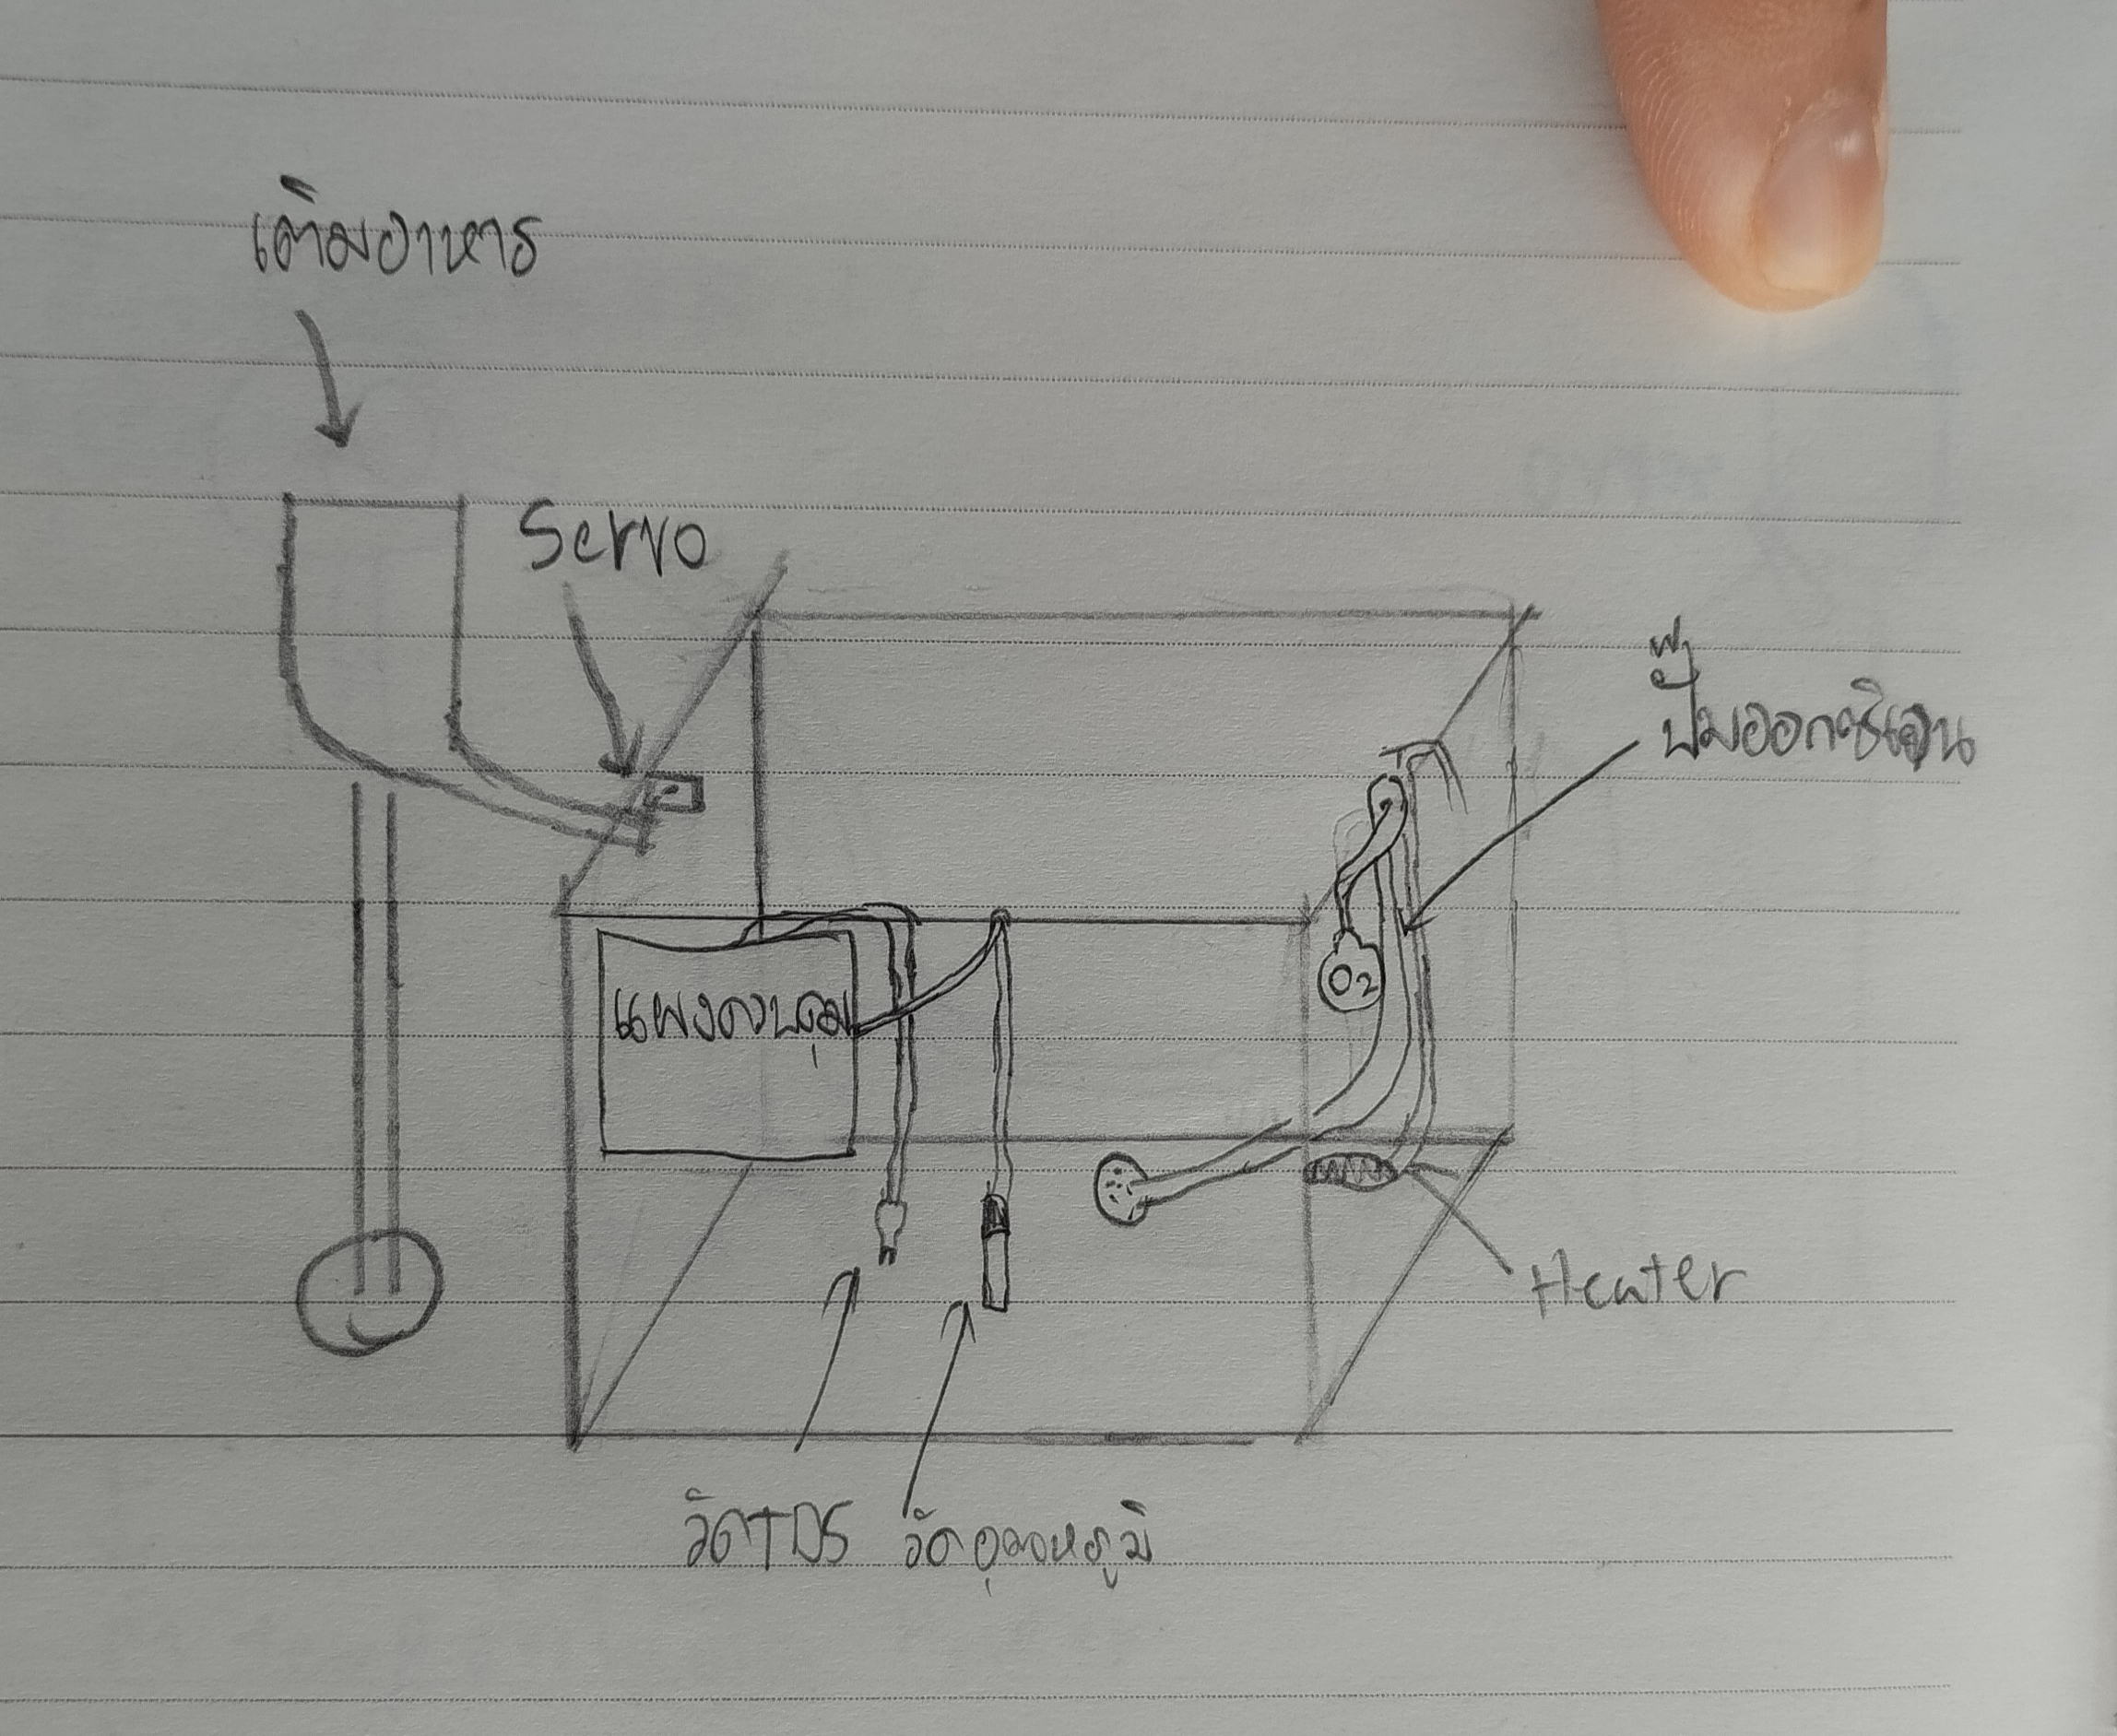 เติมอาหาร
Servo
ปั๊มออกซิเจน
แผงควบคุม
O2
Heater
วัดTDS วัดอุณหภูมิ